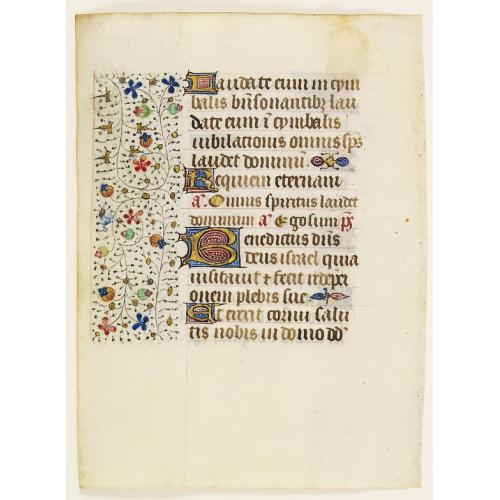 Laudate eum in cym
balis bn̄sonantibꝫ lau
date eum ī cymbalis
iubilationis omnis sp̄s
laudet dominū.
Requiem eternam
a. Omnis spiritus laudet
dominum a. Ego sum p̄s
Benedictus dn̄s
deus israel quia
visitavit et fecit redēp̄ci
onem plebis sue
Et erexit cornu salu
tis nobis in domo dd